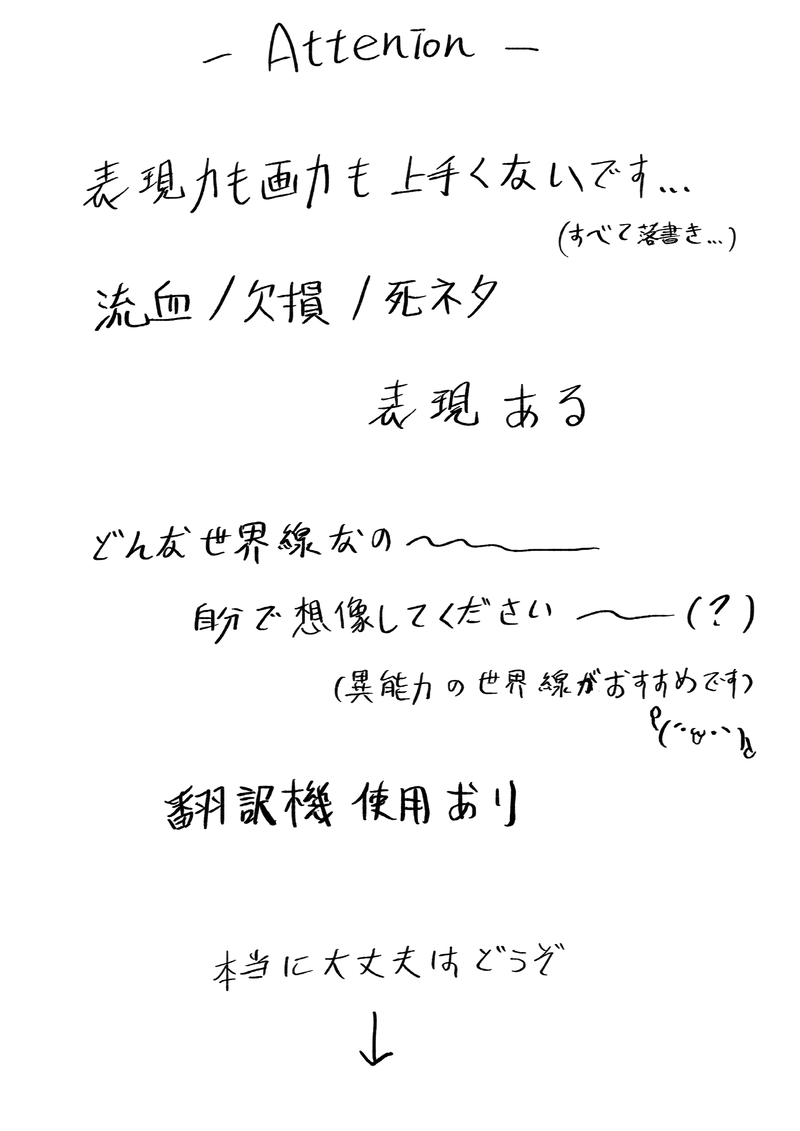 - Attention -
表現力も画力も上手くないです...
(すべて落書き...)
流血/欠損/死ネタ
表現ある
どんな世界線なの〜〜
自分で想像してください〜(?)
(異能力の世界線がおすすめです)
翻訳機使用あり
本当に大丈夫はどうぞ
↓